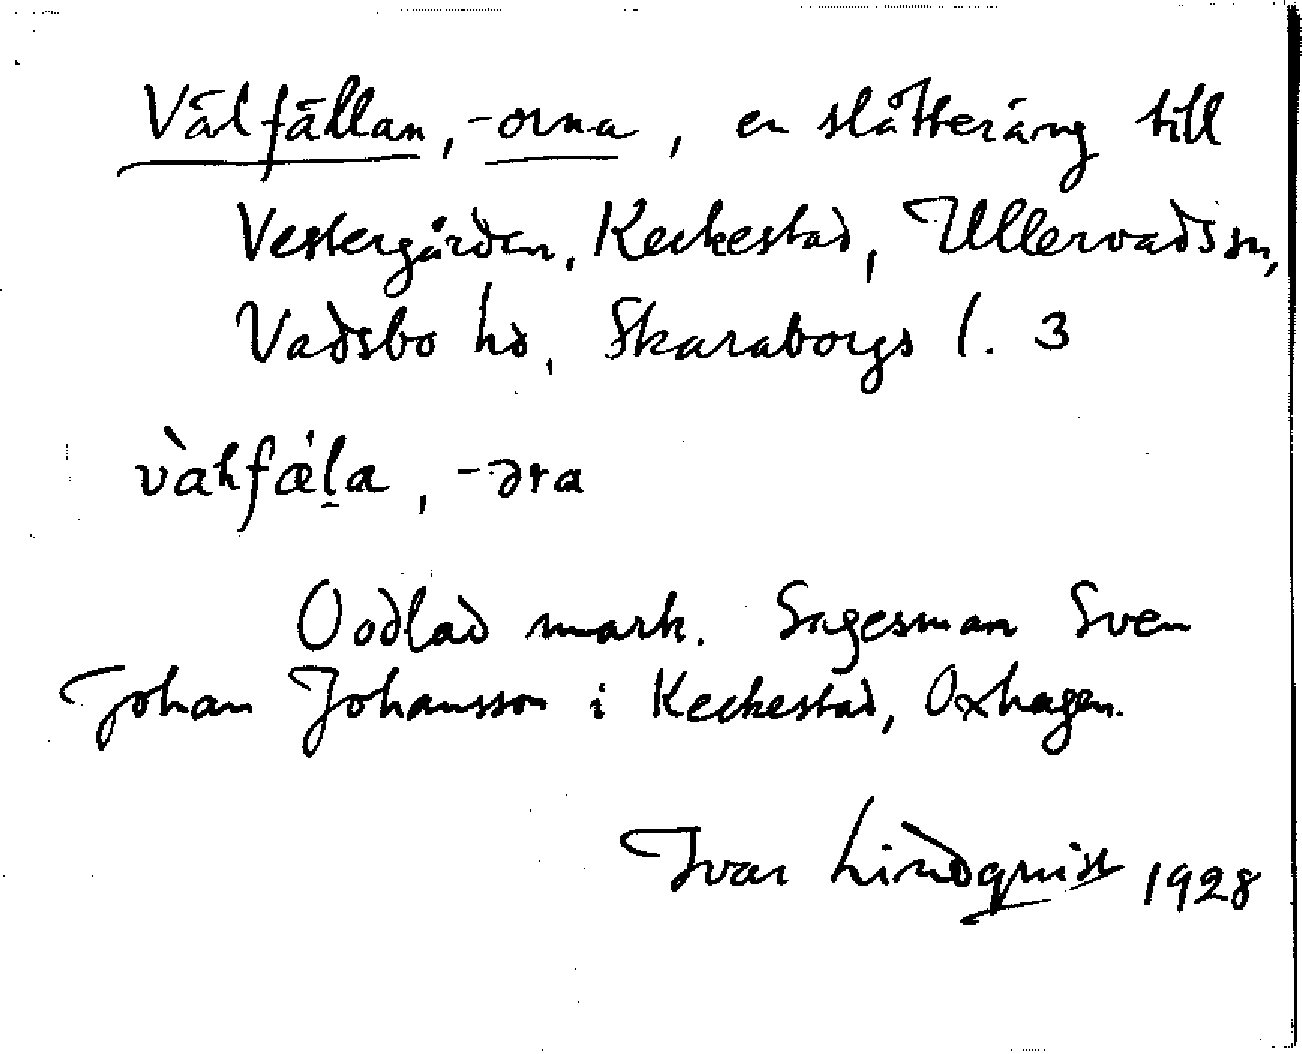 Vålfällan, -orna, en slåtteräng till
Vestergården, Keckestad, Ullervads sn,
Vadsbo hd, Skaraborgs l. 3
-əra
Oodlad mark. Sagesman Sven
Johan Johansson i Keckestad, Oxhagen.
Ivar Lindquist 1928